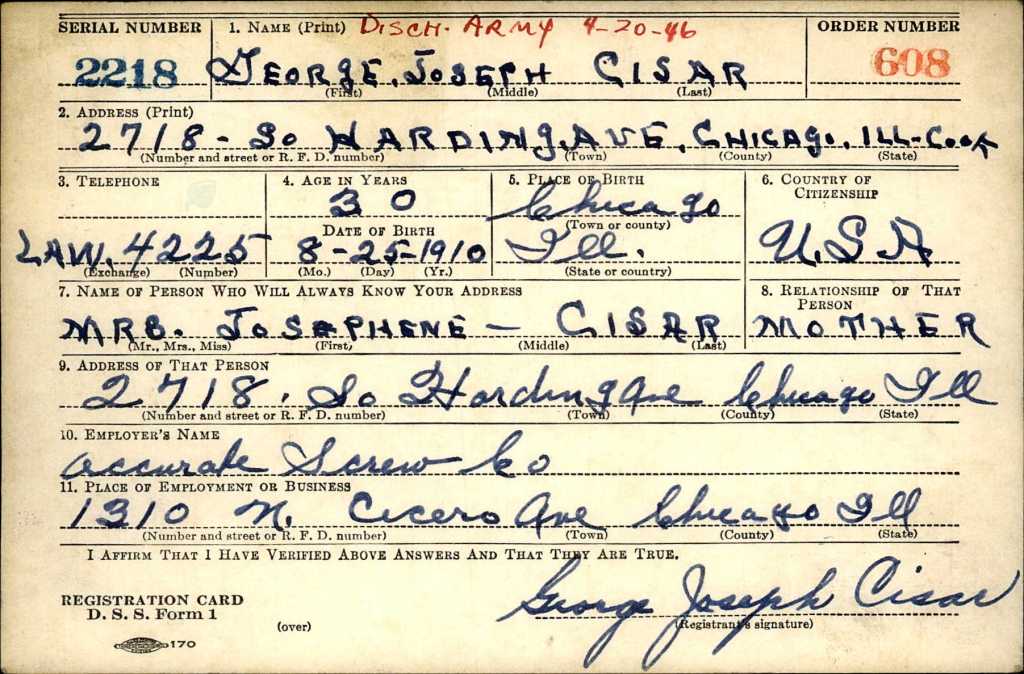 SERIAL NUMBER 1. NAME (Print) DISCH. ARMY 4-20-46 ORDER NUMBER
2218 GEORGE. JOSEPH CISAR 608
(First) (Middle) (Last)
2. ADDRESS (Print)
2718 - So HARDING. AVE. CHICAGO. ILL-COOK
(Number and street or R. F. D. number) (Town) (County) (State)
3. TELEPHONE 4. AGE IN YEARS 5. PLACE OF BIRTH 6. COUNTRY OF CITIZENSHIP
30 Chicago
DATE OF BIRTH (Town or county)
LAW. 4225 8-25-1910 Ill. U.S.A
(Exchange) (Number) (Mo.) (Day) (Yr.) (State or country)
7. NAME OF PERSON WHO WILL ALWAYS KNOW YOUR ADDRESS 8. RELATIONSHIP OF THAT PERSON
MRS. JOSEPHENE - CISAR MOTHER
(Mr., Mrs., Miss) (First) (Middle) (Last)
9. ADDRESS OF THAT PERSON
2718. So Harding Ave Chicago Ill
(Number and street or R. F. D. number) (Town) (County) (State)
10. EMPLOYER'S NAME
Accurate Screw Co
11. PLACE OF EMPLOYMENT OR BUSINESS
1310 N. Cicero Ave Chicago Ill
(Number and street or R. F. D. number) (Town) (County) (State)
I AFFIRM THAT I HAVE VERIFIED ABOVE ANSWERS AND THAT THEY ARE TRUE.
George Joseph Cisar
REGISTRATION CARD
D. S. S. Form 1 (Registrant's signature)
(over)
170